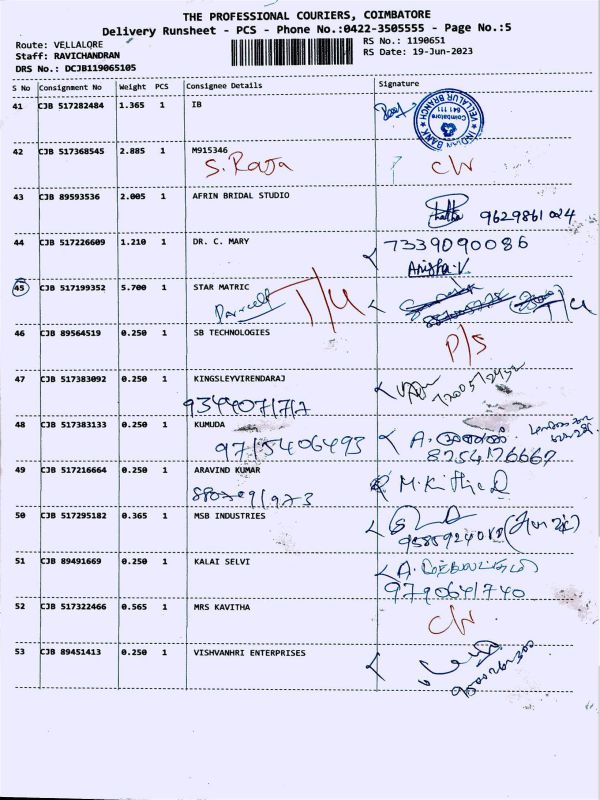 THE PROFESSIONAL COURIERS, COIMBATORE
Delivery Runsheet - PCS - Phone No.:0422-3505555 - Page No.:5
Route: VELLALORE
RS No.: 1190651
Staff: RAVICHANDRAN
RS Date: 19-Jun-2023
DRS No.: DCJB119065105
S No Consignment No Weight PCS Consignee Details Signature
41 CJB 517282484 1.365 1 IB
INDIAN BANK VELLALUR BRANCH Coimbatore 641 111
42 CJB 517368545 2.885 1 M915346
S. Raja C/W
43 CJB 89593536 2.005 1 AFRIN BRIDAL STUDIO
9629861024
44 CJB 517226609 1.210 1 DR. C. MARY 7339090086
Anisha.V
45 CJB 517199352 5.700 1 STAR MATRIC
T/U T/U
46 CJB 89564519 0.250 1 SB TECHNOLOGIES P/S
47 CJB 517383092 0.250 1 KINGSLEYVIRENDARAJ
9344071717
48 CJB 517383133 0.250 1 KUMUDA
9715406493 8754176667
49 CJB 517216664 0.250 1 ARAVIND KUMAR
50 CJB 517295182 0.365 1 MSB INDUSTRIES
51 CJB 89491669 0.250 1 KALAI SELVI
9790641740
52 CJB 517322466 0.565 1 MRS KAVITHA C/W
53 CJB 89451413 0.250 1 VISHVANHRI ENTERPRISES